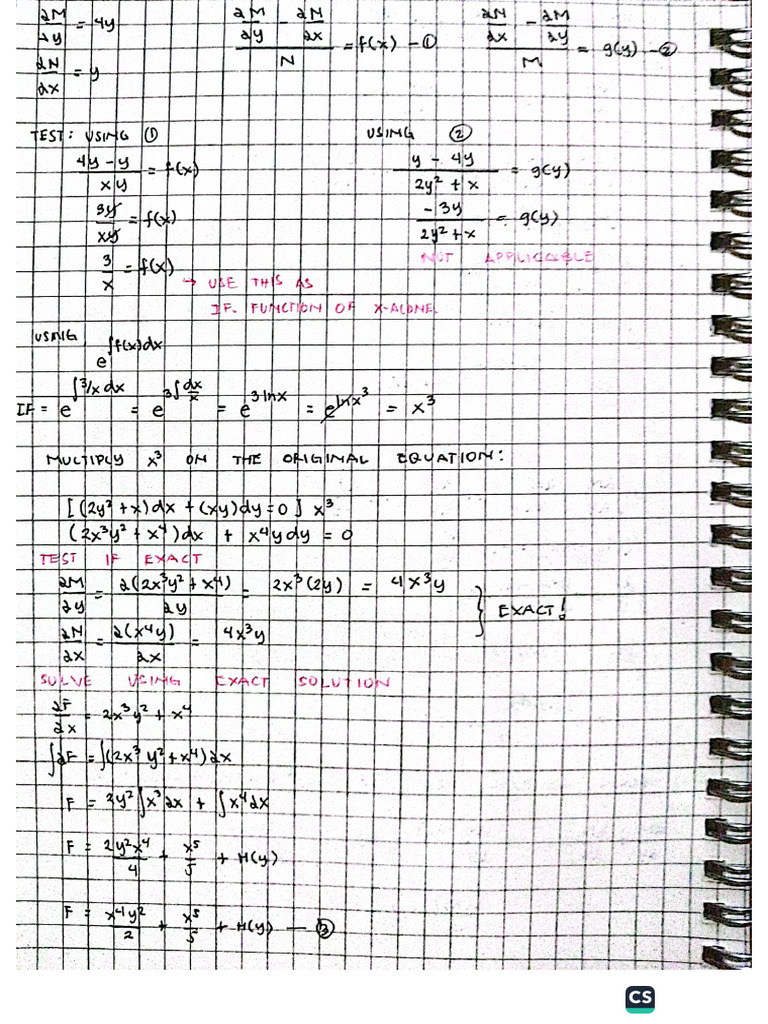 ∂M/∂y = 4y
∂N/∂x = y
(∂M/∂y - ∂N/∂x)/N = f(x) - ①
(∂N/∂x - ∂M/∂y)/M = g(y) - ②
TEST: USING ①
(4y - y)/xy = f(x)
3y/xy = f(x)
3/x = f(x)
→ USE THIS AS
IF. FUNCTION OF X-ALONE.
USING ②
(y - 4y)/(2y² + x) = g(y)
-3y/(2y² + x) = g(y)
NOT APPLICABLE
USING
e^∫f(x)dx
IF = e^∫3/x dx = e^3∫dx/x = e^3lnx = e^lnx³ = x³
MULTIPLY x³ ON THE ORIGINAL EQUATION:
[(2y² + x)dx + (xy)dy = 0] x³
(2x³y² + x⁴)dx + x⁴ydy = 0
TEST IF EXACT
∂M/∂y = ∂(2x³y² + x⁴)/∂y = 2x³(2y) = 4x³y
∂N/∂x = ∂(x⁴y)/∂x = 4x³y
} EXACT!
SOLVE USING EXACT SOLUTION
∂F/∂x = 2x³y² + x⁴
∫∂F = ∫(2x³y² + x⁴)∂x
F = 2y²∫x³∂x + ∫x⁴∂x
F = 2y²x⁴/4 + x⁵/5 + H(y)
F = x⁴y²/2 + x⁵/5 + H(y) — ③
CS